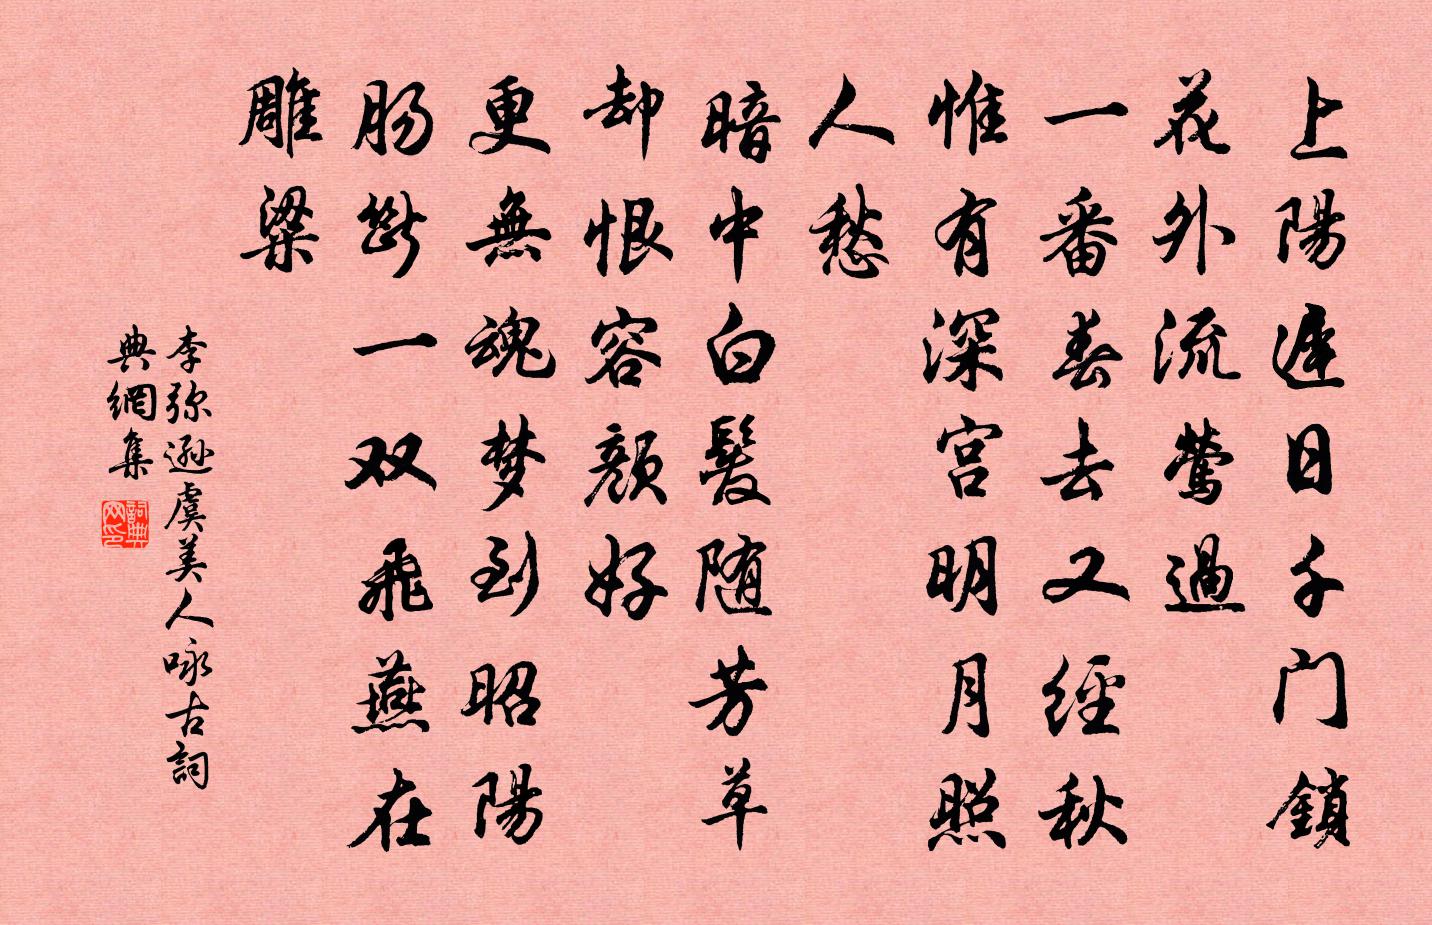 上陽遲日千门鎖
花外流鶯過
一番春去又經秋
惟有深宫明月照
人愁
暗中白髮随芳草
却恨容顏好
更無魂梦到昭陽
肠斷一双飛燕在
雕梁
李弥遜虞美人咏古詞
典網集
詞典
网印